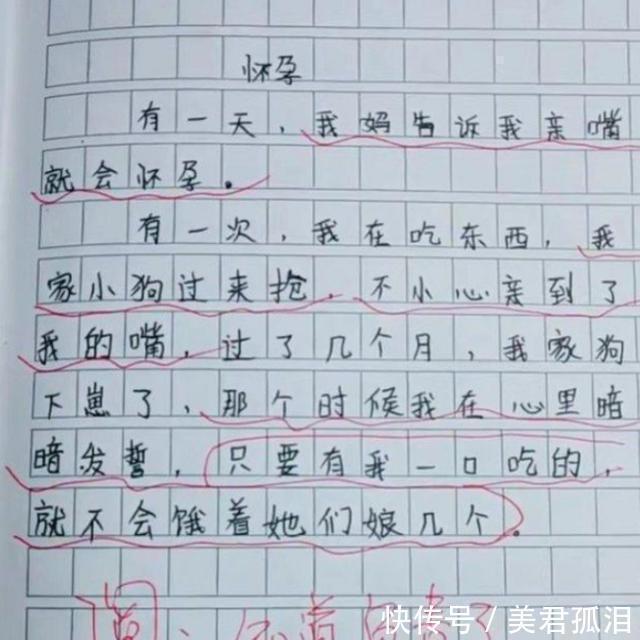 怀孕
有一天，我妈告诉我亲嘴
就会怀孕。
有一次，我在吃东西，我
家小狗过来抢，不小心亲到了
我的嘴，过了几个月，我家狗
下崽了，那个时候我在心里暗
暗发誓，只要有我一口吃的，
就不会饿着她们娘几个。
快传号／美君孤泪